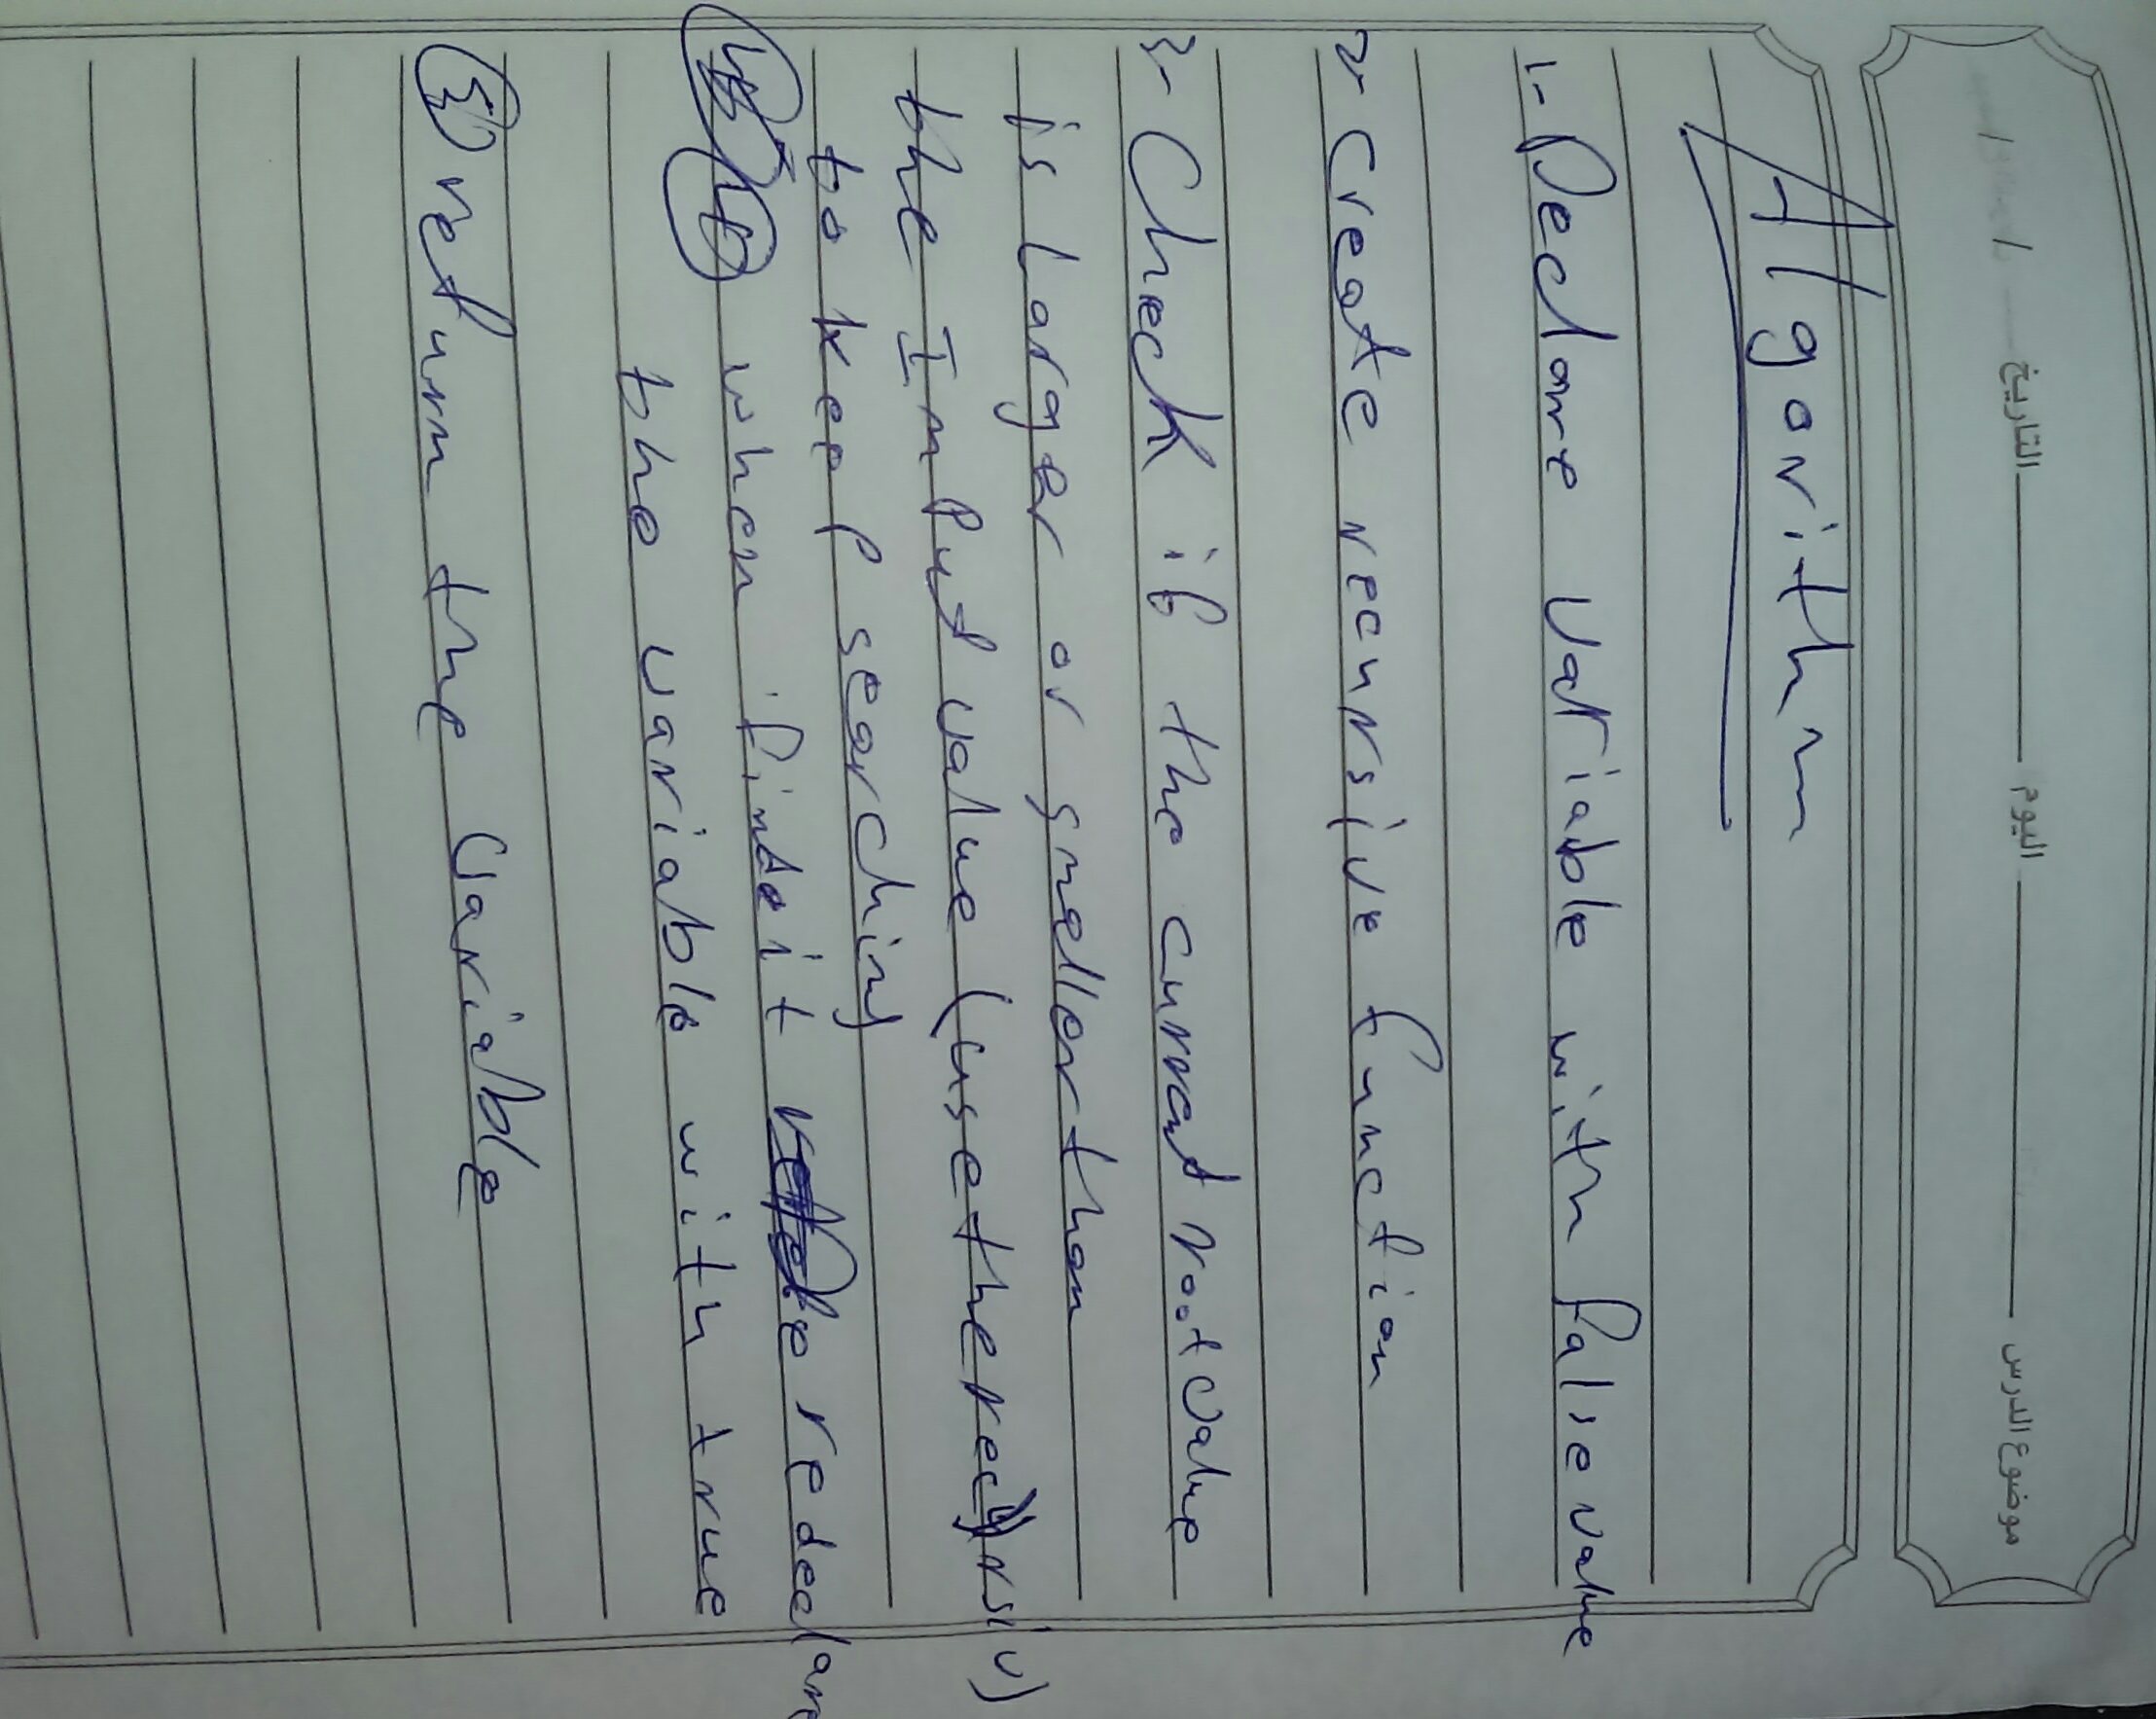 التاريخ اليوم موضوع الدرس
Algorithm
1- Declare Variable with false value
2- create recursive function
3- Check if the current root value
is larger or smaller than
the Input value (use the recursiv)
to keep searching
when find it redeclare
the variable with true
return the variable